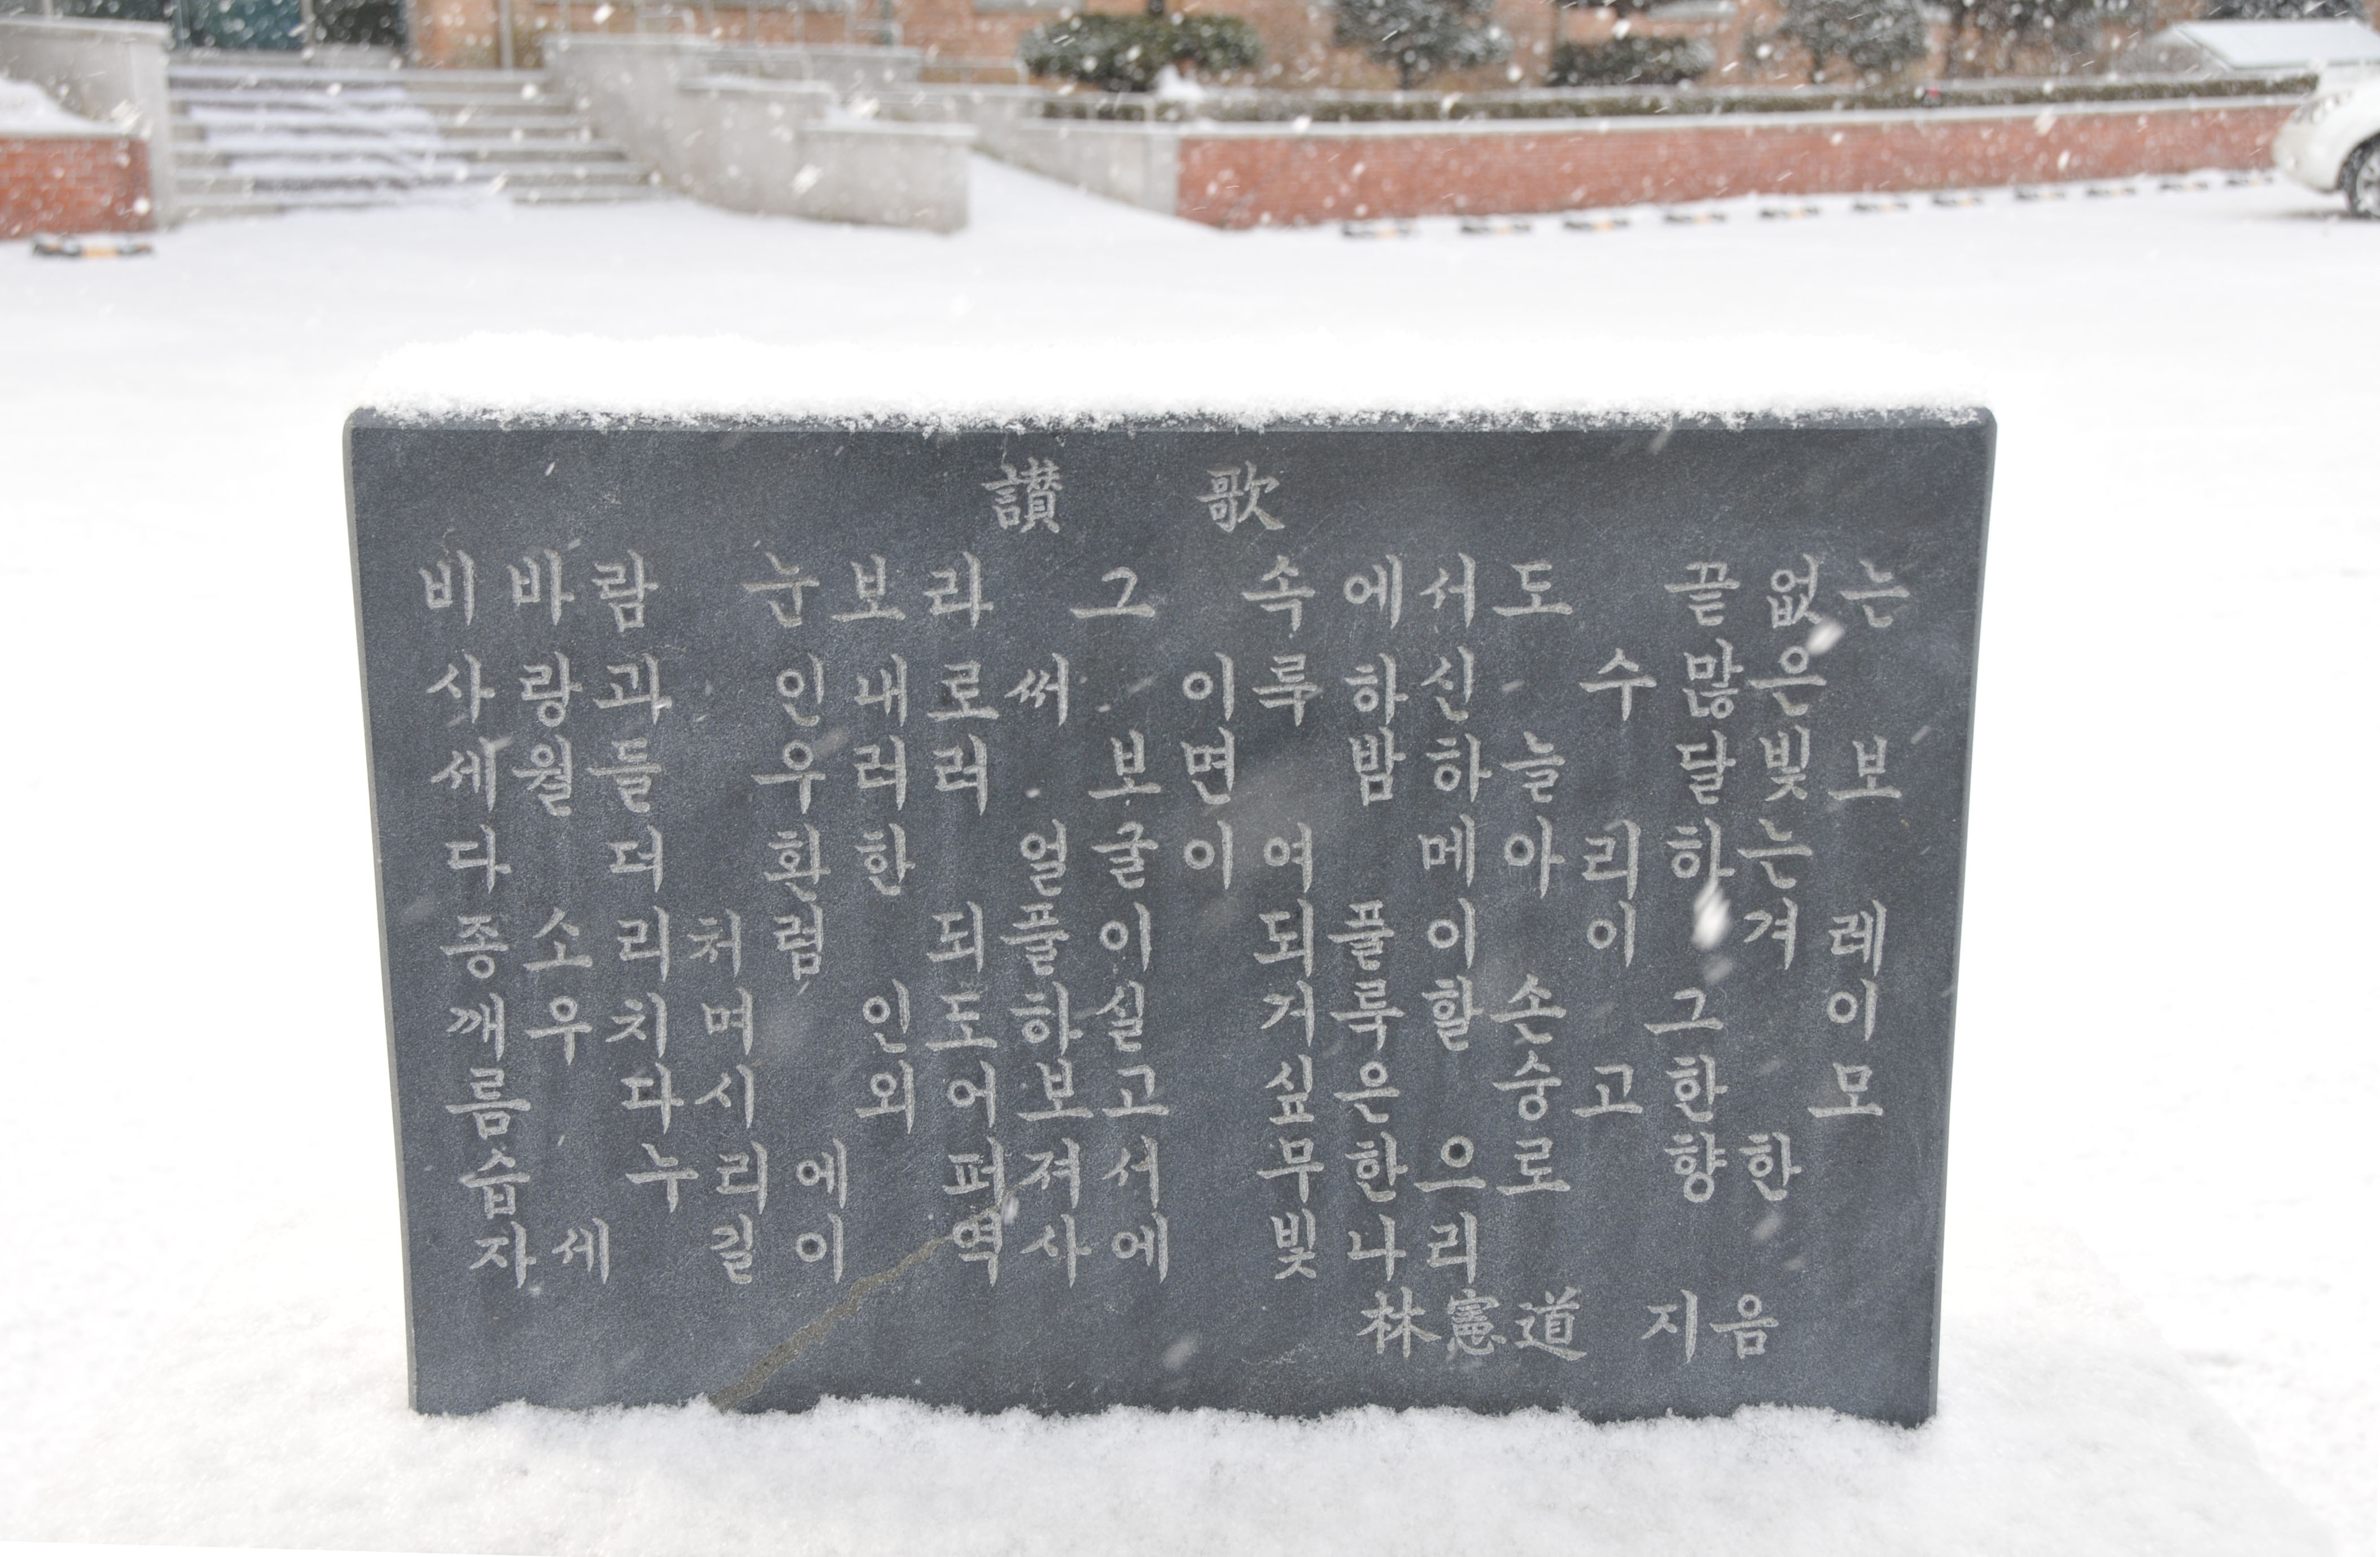 讃 歌
비바람 눈보라 그 속에서도 끝없는
사랑과 인내로써 이룩하신 수많은
세월들 우러러 보면 밤하늘 달빛 보
다 더 환한 얼굴이여 메아리하는
종소리처럼 되풀이 되풀이 이 겨레
깨우치며 인도하실 거룩할손 그 이
름 다시 외어보고 싶은 숭고한 모
습 누리에 퍼져서 무한으로 향한
자세 길이 역사에 빛나리
林憲道 지음